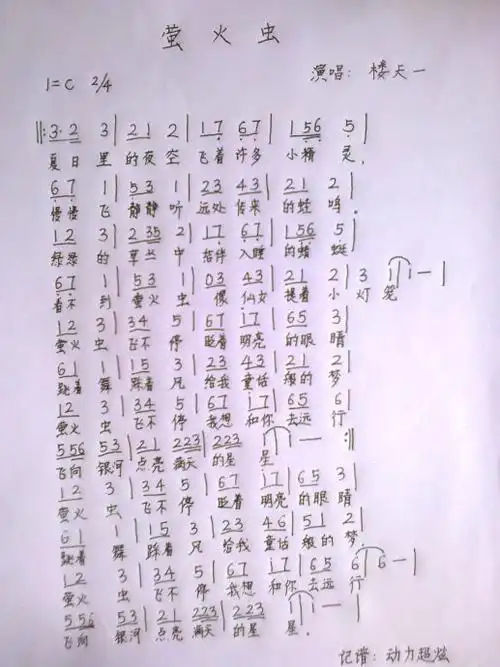 萤火虫
1=C 2/4 演唱：楼天一
‖: 3·2 3 | 21 2 | 17 67 | 156 5 |
夏日里的夜空飞着许多小精灵，
67 1 | 53 1 | 23 43 | 21 2 |
慢慢飞静静听远处传来的蛙鸣。
12 3 | 2 35 2 | 17 67 | 156 5 |
绿绿的草丛中陪伴入睡的蜻蜓
67 1 | 53 1 | 03 43 | 21 2 | 3 i | i — |
看不到萤火虫像仙女提着小灯笼
12 3 | 34 5 | 67 i7 | 65 3 |
萤火虫飞不停眨着明亮的眼睛
61 1 | 15 3 | 23 43 | 21 2 |
跳着舞踩着风给我童话般的梦
12 3 | 34 5 | 67 i7 | 65 6 |
萤火虫飞不停我想和你去远行
556 53 | 21 223 | 223 i | i — :‖
飞向银河点亮满天的星星
12 3 | 34 5 | 67 i7 | 65 3 |
萤火虫飞不停眨着明亮的眼睛
61 1 | 15 3 | 23 46 | 51 2 |
跳着舞踩着风给我童话般的梦。
12 3 | 34 5 | 67 i7 | 65 6 | 6 — |
萤火虫飞不停我想和你去远行
556 53 | 21 223 | 223 i | i — |
飞向银河点亮满天的星星。
记谱：动力超炫